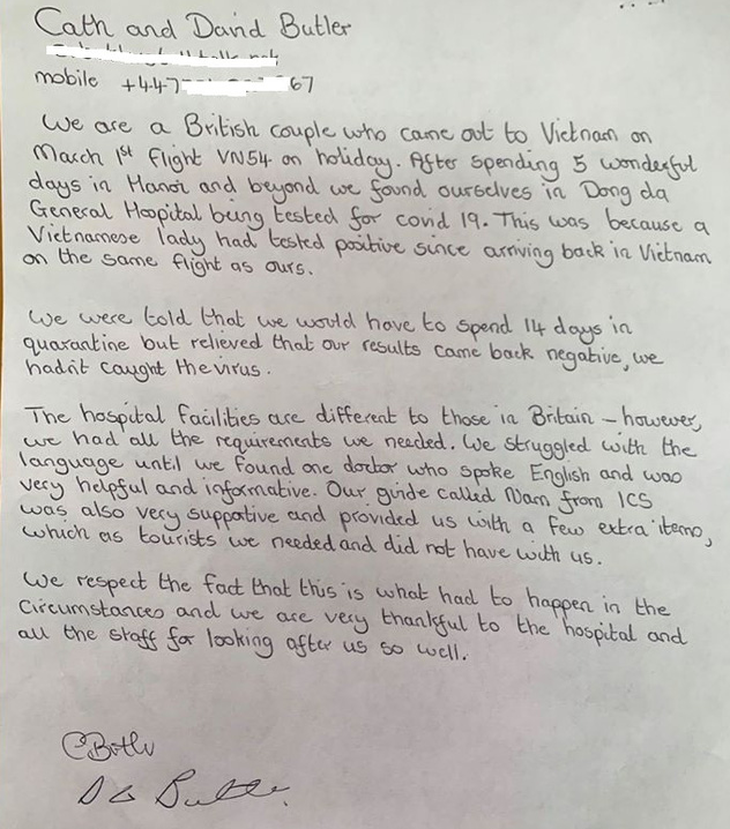 Cath and David Butler
mobile +447 67
We are a British couple who came out to Vietnam on
March 1st flight VN54 on holiday. After spending 5 wonderful
days in Hanoi and beyond we found ourselves in Dong da
General Hospital being tested for covid 19. This was because a
Vietnamese lady had tested positive since arriving back in Vietnam
on the same flight as ours.
We were told that we would have to spend 14 days in
quarantine but relieved that our results came back negative, we
hadn't caught the virus.
The hospital facilities are different to those in Britain – however,
we had all the requirements we needed. We struggled with the
language until we found one doctor who spoke English and was
very helpful and informative. Our guide called Nam from ICS
was also very supportive and provided us with a few extra items,
which as tourists we needed and did not have with us.
We respect the fact that this is what had to happen in the
circumstances and we are very thankful to the hospital and
all the staff for looking after us so well.
CButler
D G Butler.